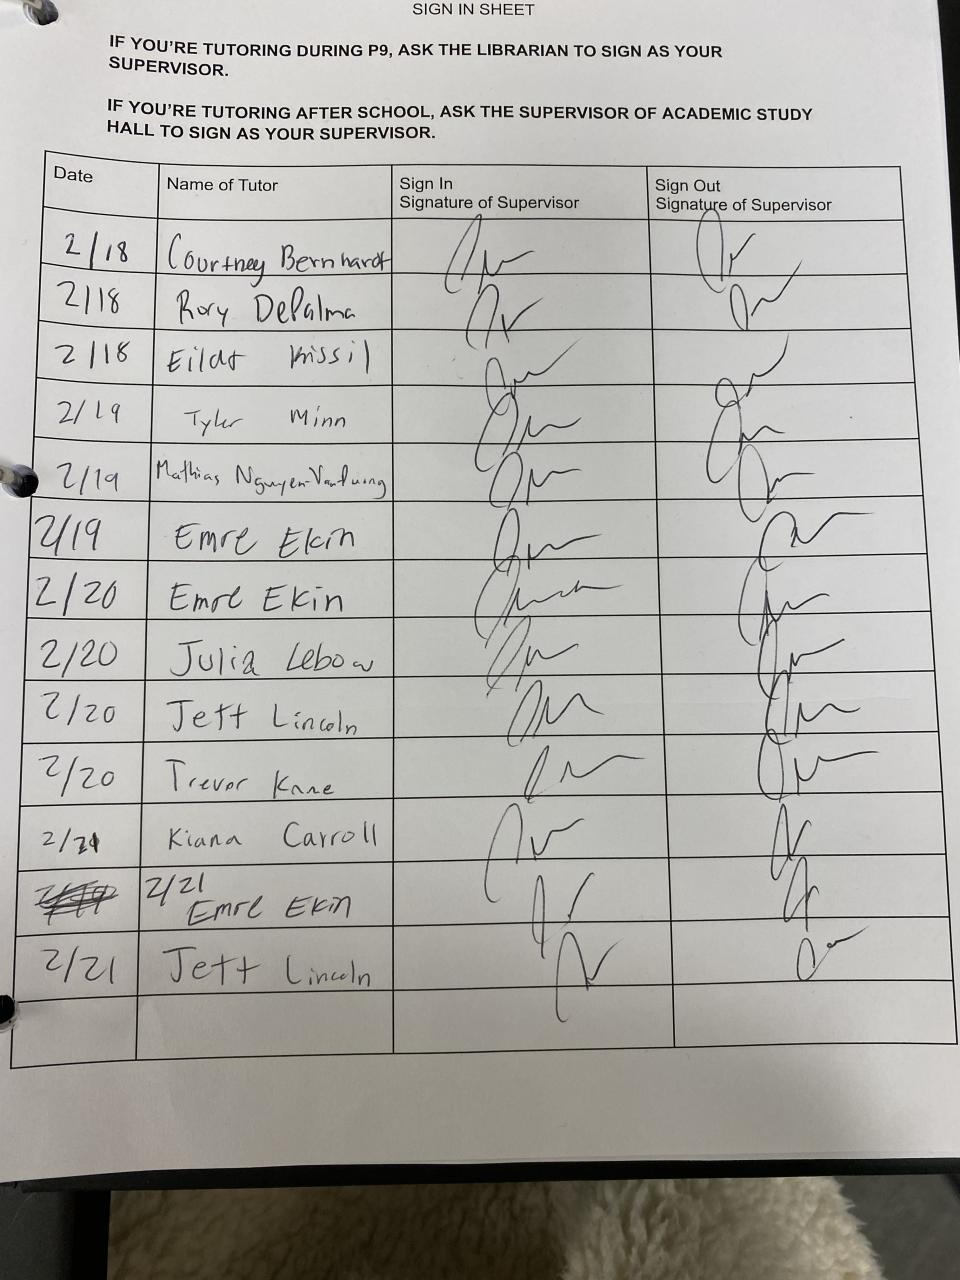 SIGN IN SHEET
IF YOU'RE TUTORING DURING P9, ASK THE LIBRARIAN TO SIGN AS YOUR
SUPERVISOR.
IF YOU'RE TUTORING AFTER SCHOOL, ASK THE SUPERVISOR OF ACADEMIC STUDY
HALL TO SIGN AS YOUR SUPERVISOR.
Date Name of Tutor Sign In Sign Out
Signature of Supervisor Signature of Supervisor
2/18 Courtney Bernhardt
2/18 Rory DePalma
2/18 Eildt Kissil
2/19 Tyler Minn
2/19 Mathias
2/19 Emre Ekin
2/20 Emre Ekin
2/20 Julia Lebow
2/20 Jett Lincoln
2/20 Trevor Kane
2/21 Kiana Carroll
2/21
Emre Ekin
2/21 Jett Lincoln